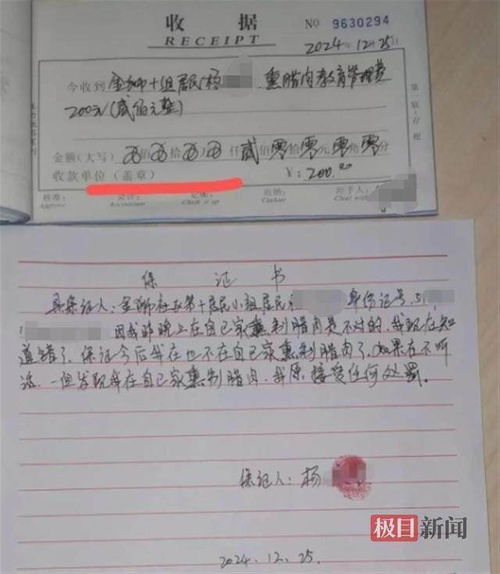 收 据
RECEIPT
NO 9630294
2024年12月25日
今收到 金狮十组居民杨 熏腊肉教育管理费
200元(贰佰元整)
金额(大写) 佰 拾 万 仟 贰 零 零 元 零 零 分
收款单位(盖章) ¥:200.00
核准: 会计: 记账: 出纳: 经手人:
第一联:存根
保 证 书
具保证人:金狮社区第十居民小组居民 身份证号,51
因我昨晚上在自己家熏制腊肉是不对的,我现在知
道错了,保证今后我在也不在自己家熏制腊肉了,如果在不听
话,一但发现我在自己家熏制腊肉,我愿接受任何处罚。
保证人:杨
极目新闻
2024.12.25.